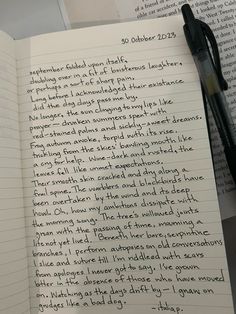 of a friend
old car accident, and
30 October 2023
september folded upon itself,
doubling over in a fit of boisterous laughter,
or perhaps a sort of sharp pain.
Long before I acknowledged their existence
did the dog days pass me by.
No longer, the sun clinging to my lips like
prayer — drunken summers spent with
red-stained palms and sickly-sweet dreams.
Frog autumn awoke, torpid with its rise.
trickling from the skies' banding mouth like
a cry for help. Wine-dark and rusted, the
leaves fall like unmet expectations.
Their smooth skin cracked and dry along a
frail spine. The warblers and blackbirds have
been overtaken by the wind and its deep
howl. Oh, how my ambitions dissipate with
the morning song. The tree's willowed joints
groan with the passing of time, mourning a
life not yet lived. Beneath her bare, serpentine
branches, I perform autopsies on old conversations
I slice and suture till I'm riddled with scars
from apologies I never got to say. I've grown
bitter in the absence of those who have moved
on. Watching as the days drift by — I gnaw on
grudges like a bad dog.